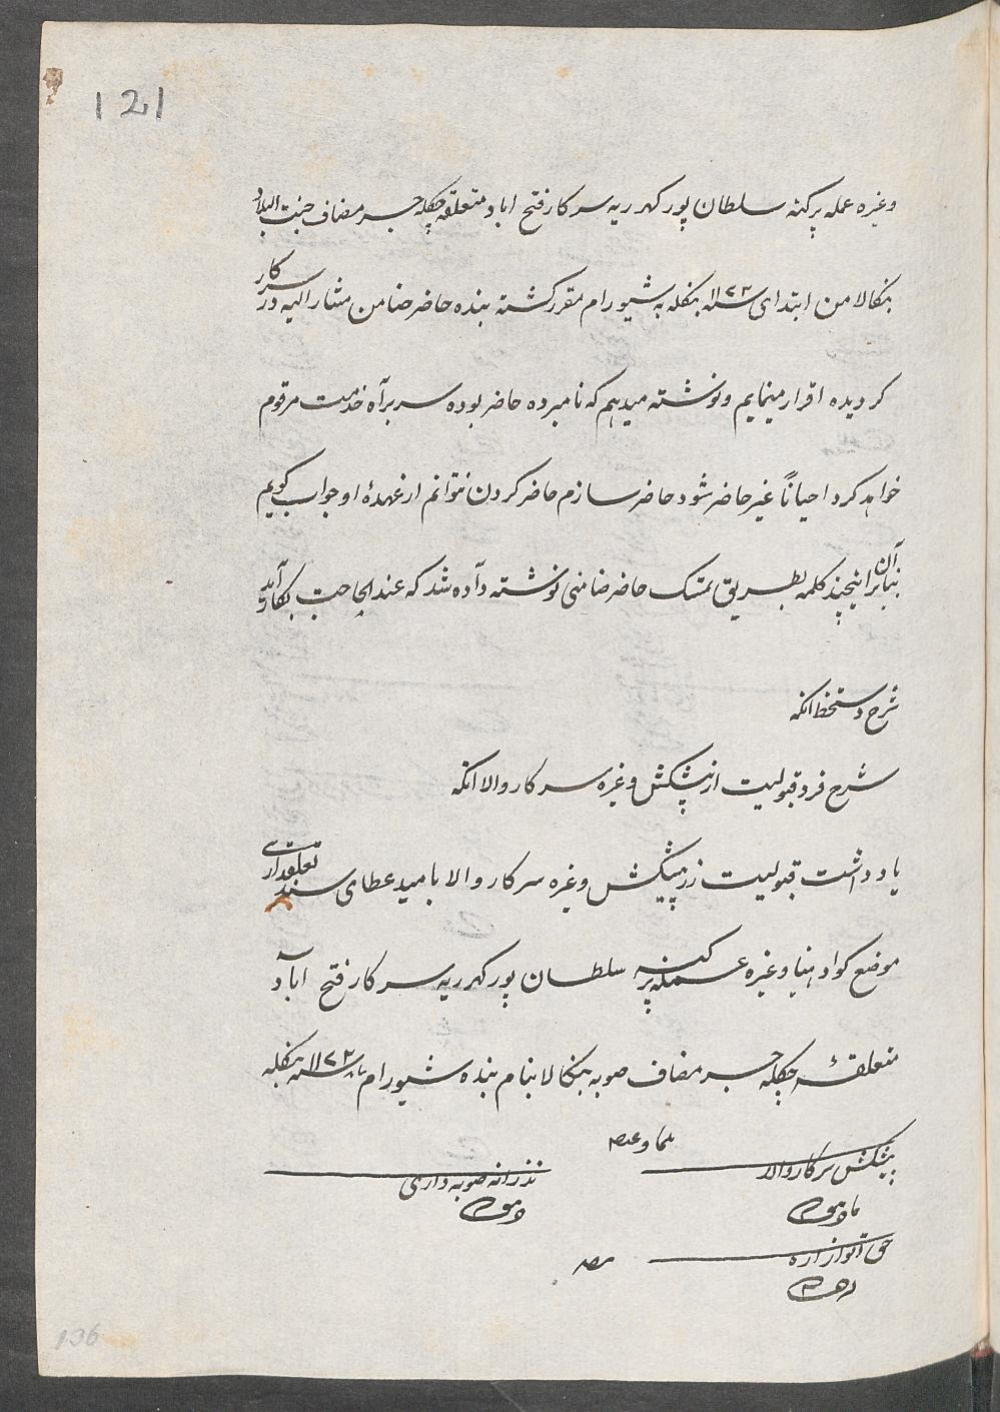 121
وغیره عمله پرکنه سلطان پور کهرریه سرکار فتح اباد متعلقه چکله جسر مضاف جنت البلاد
بنکالا من ابتدای سنه ۱۱۷۳ بنکله به شیورام مقرر کشته بنده حاضر ضامن مشار الیه در سرکار
کردیده اقرار مینمایم و نوشته میدهم که نامبرده حاضر بوده سربراه خدمت مرقوم
خواهد کرد احیاناً غیر حاضر شود حاضر سازم حاضر کردن نتوانم از عهدهٔ او جواب کویم
بنابر آن اینچند کلمه بطریق تمسک حاضر ضامنی نوشته داده شد که عند الحاجت بکار آید
شرح دستخط انکه
شرح فرد قبولیت از پیشکش وغیره سرکار والا انکه
یادداشت قبولیت زر پیشکش وغیره سرکار والا بامید عطای سند تعلقداری
موضع وغیره عمله پرکنه سلطان پور کهرریه سرکار فتح اباد
متعلقهٔ چکله جسر مضاف صوبه بنکالا بنام بنده شیورام سنه ۱۱۷۳ بنکله
پیشکش سرکار والا
نذرانه صوبه داری
حق
136